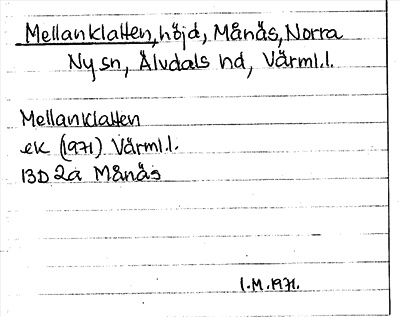 Mellanklatten, höjd, Månäs, Norra
Ny sn, Älvdals hd, Värml.l.
Mellanklatten
ek (1971) Värml.l.
13D 2a Månäs
I.M. 1971.